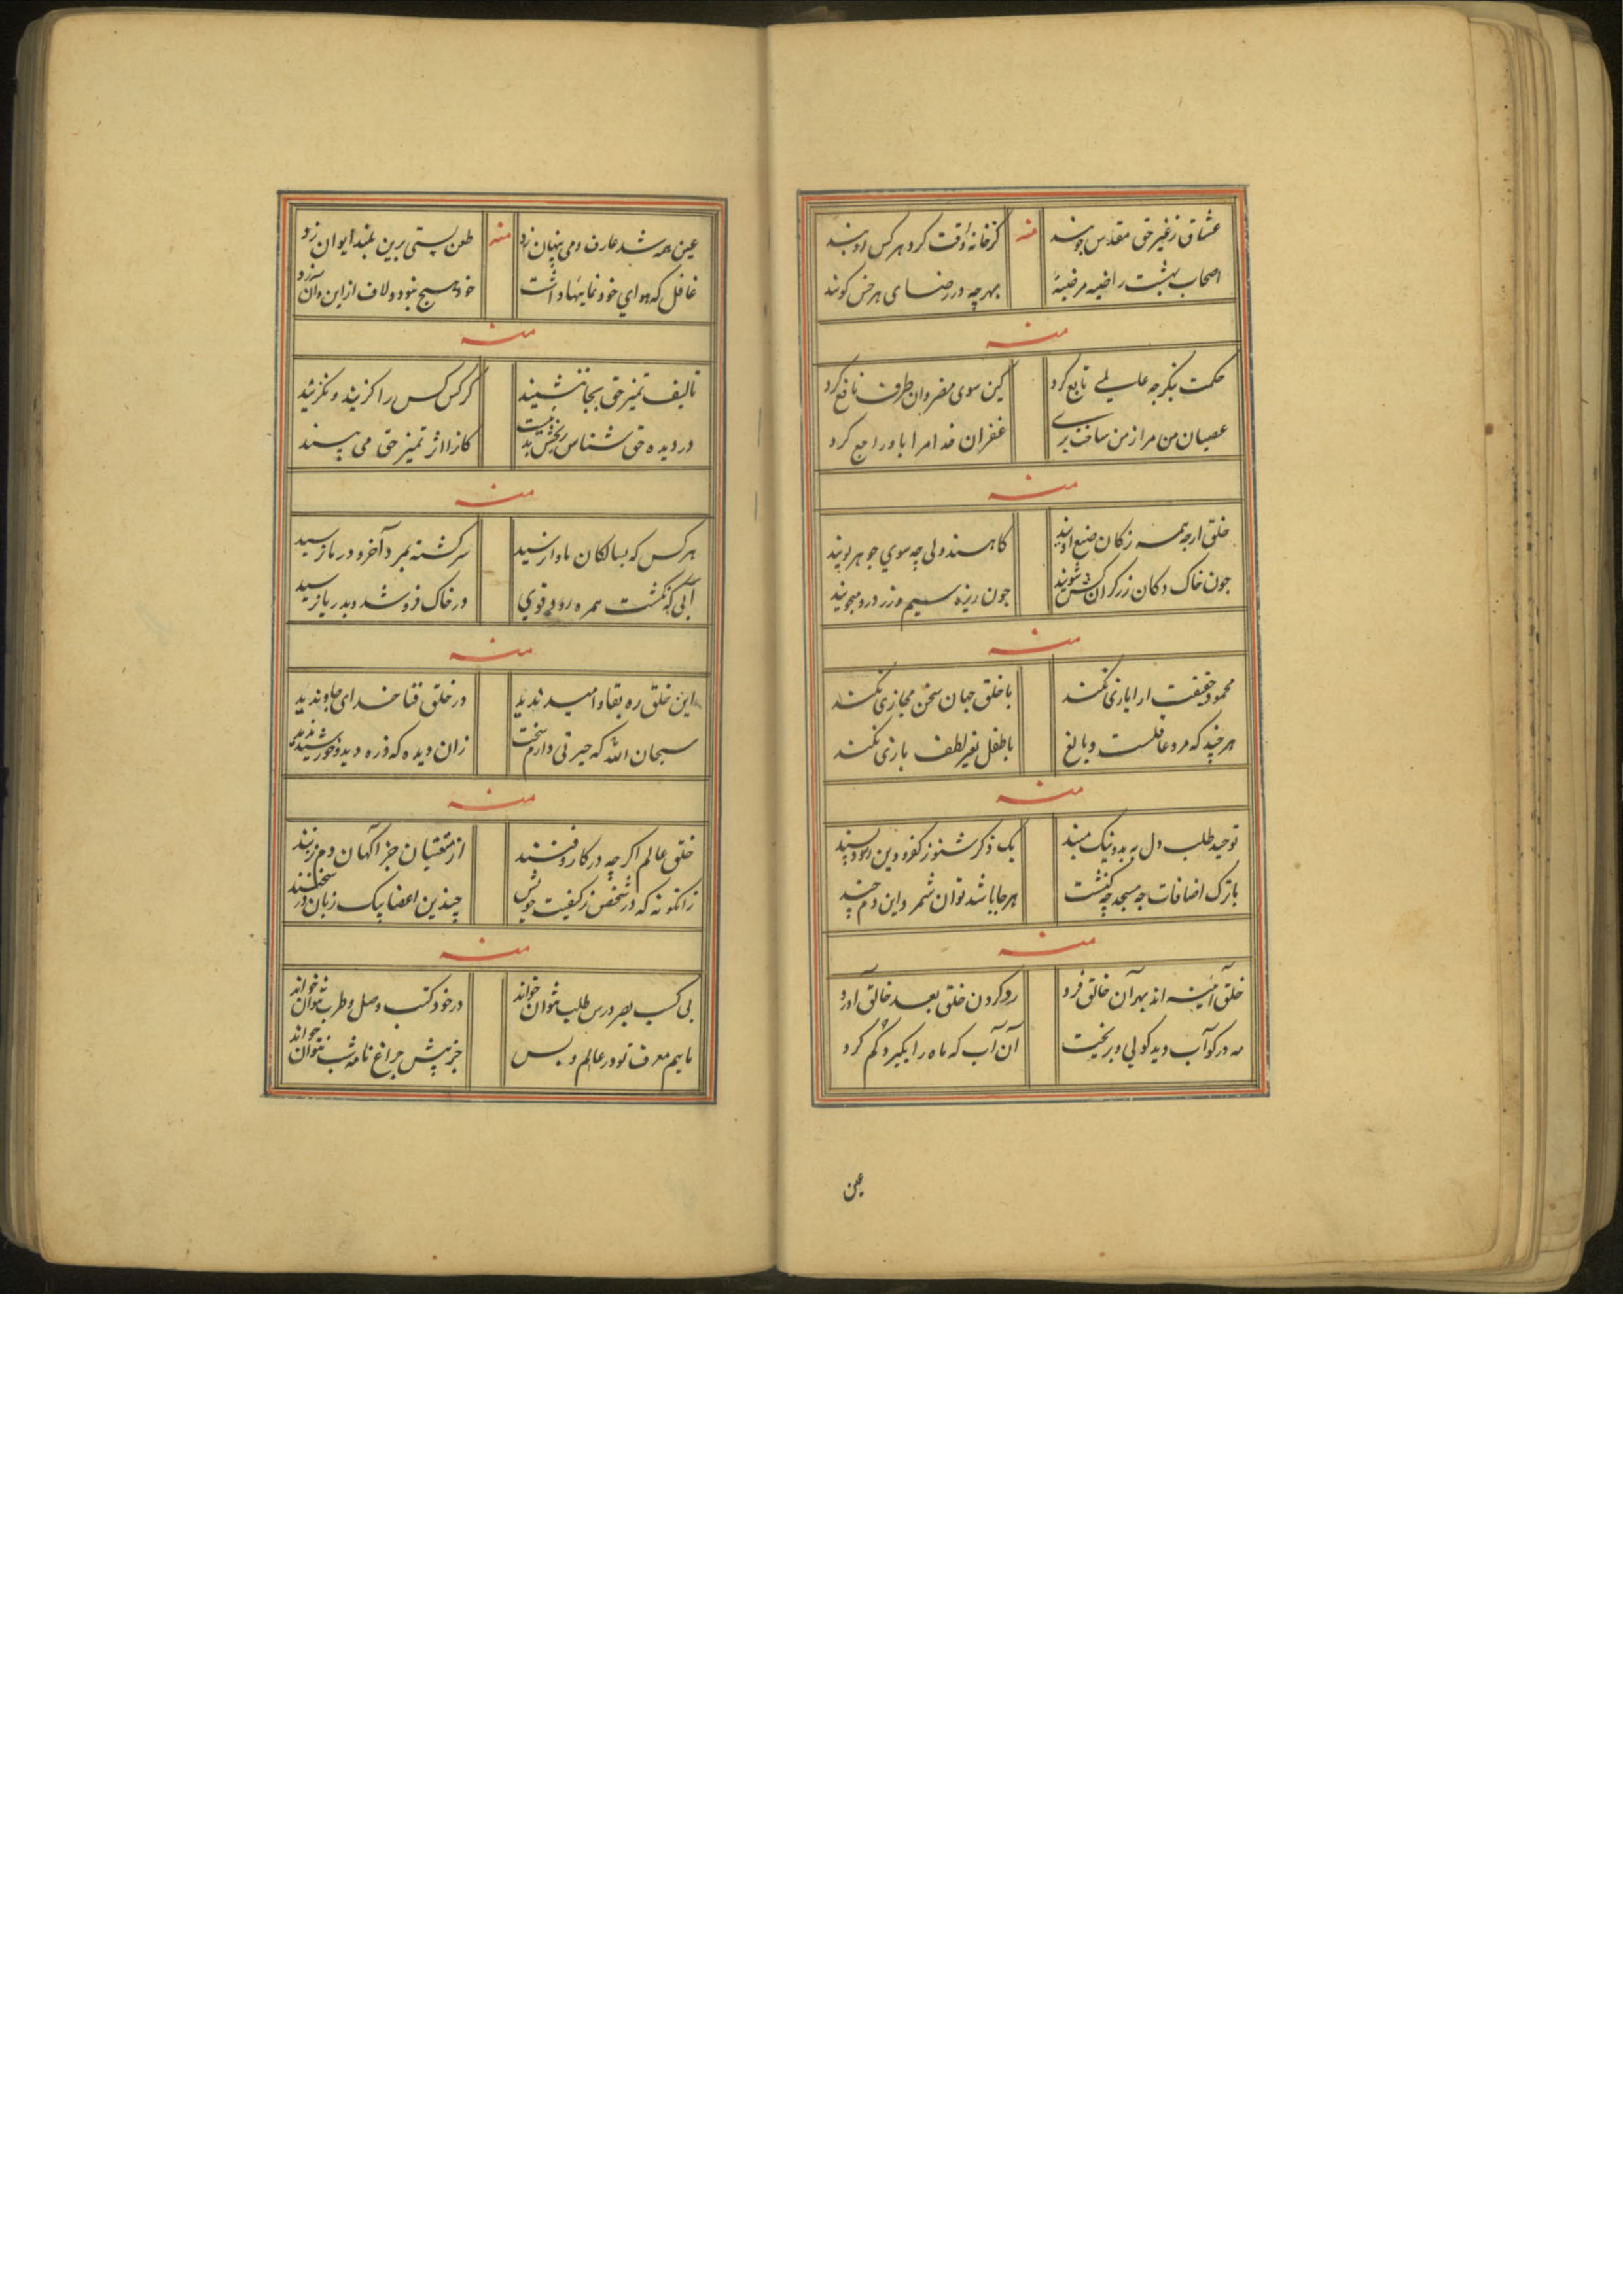 عشاق زغیر حق مقدس جویند منه کرخانه وقت کرد هرکس اویند
اصحاب بهشت راضیه مرضیهٔ بهرچه در رضای هر خس کویند
منه
حکمت بنکر چه عالمی تابع کرد کین سوی مضر وان طرف نافع کرد
عصیان من مرا ز من ساخت بری غفران خدا مرا باو راجع کرد
منه
خلق ارچه همه زکان صنع اویند کاهند ولی چه سوی جوهر پویند
چون خاک دکان زرکران کس شویند چون ریزه سیم و زر درو میجویند
منه
محمود حقیقت ار ایازی نکند با خلق جهان سخن مجازی نکند
هر چند که مرد عاقلست و بالغ با طفل بغیر لطف بازی نکند
منه
توحید طلب دل به بد و نیک مبند یک ذکر شنو ز کفر و دین
با ترک اضافات چه مسجد چه کنشت هر جا باشد توان شمرد این دم چند
منه
خلق آئینه اند بهر آن خالق فرد رد کردن خلق بعد خالق آورد
مه در کو آب دید کولی و بریخت آن آب که ماه را بکیرد کم کرد
عین
عین همه شد عارف و می پنهان زد منه طعن پستی برین بلند ایوان زد
غافل که هوای خود نمائیها داشت خود هیچ نبود و لاف از این و آن زد
منه
تالیف تمیز حق بجا ننشیند کر کس کس را کزیند و نکزیند
در دیده حق شناس بخش بد نیست کانرا اثر تمیز حق می بیند
منه
هر کس که بسالکان ماوا نرسید سرکشته بمرد آخر و در ما نرسید
آبی که نکشت همره رود قوی در خاک فرو شد و بدریا نرسید
منه
این خلق ره بقا و امید ندید در خلق فنا خدای جاوید ندید
سبحان الله که حیرتی دارم سخت زان دیده که ذره دید و خورشید ندید
منه
خلق عالم اکرچه در کار و فنند از مقتیان جز آکهان دم نزنند
زانکونه که در شخص ز کیفیت خویش چندین اعضا یک زبان در سخنند
منه
بی کسب بصر درس طلب نتوان خواند در خود کتب وصل و طرب نتوان خواند
مائیم معرف تو در عالم و بس جز پیش چراغ نامه شب نتوان خواند